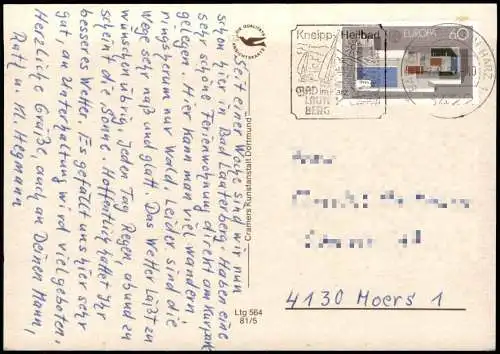 Seit einer Woche sind wir nun
schon hier in Bad Lauterberg. Haben eine
sehr schöne Ferienwohnung direkt am Kurpark
gelegen. Hier kann man viel wandern
ringsherum nur Wald. Leider sind die
Wege sehr naß und glatt. Das Wetter läßt zu
wünschen übrig. Jeden Tag Regen, ab und zu
scheint die Sonne. Hoffentlich hattet Ihr
besseres Wetter. Es gefällt uns hier sehr
gut, an Unterhaltung wird viel geboten.
Herzliche Grüße, auch an Deinen Mann,
Ruth u. Kl. Hegmann
Cramers Kunstanstalt Dortmund
Ltg 564
81/5
Kneipp-Heilbad
BAD im Harz
LAUTER
BERG
EUROPA 60
4130 Moers 1